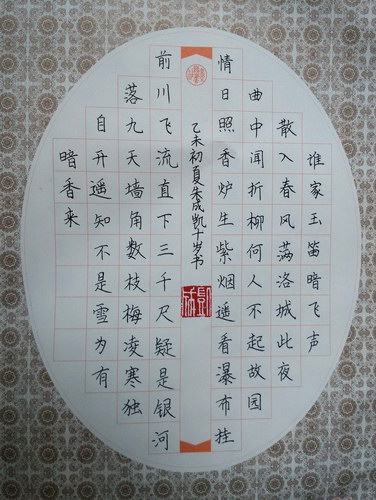 谁家玉笛暗飞声
散入春风满洛城此夜
曲中闻折柳何人不起故园
情日照香炉生紫烟遥看瀑布挂
乙未初夏朱成凯十岁书
前川飞流直下三千尺疑是银河
落九天墙角数枝梅凌寒独
自开遥知不是雪为有
暗香来